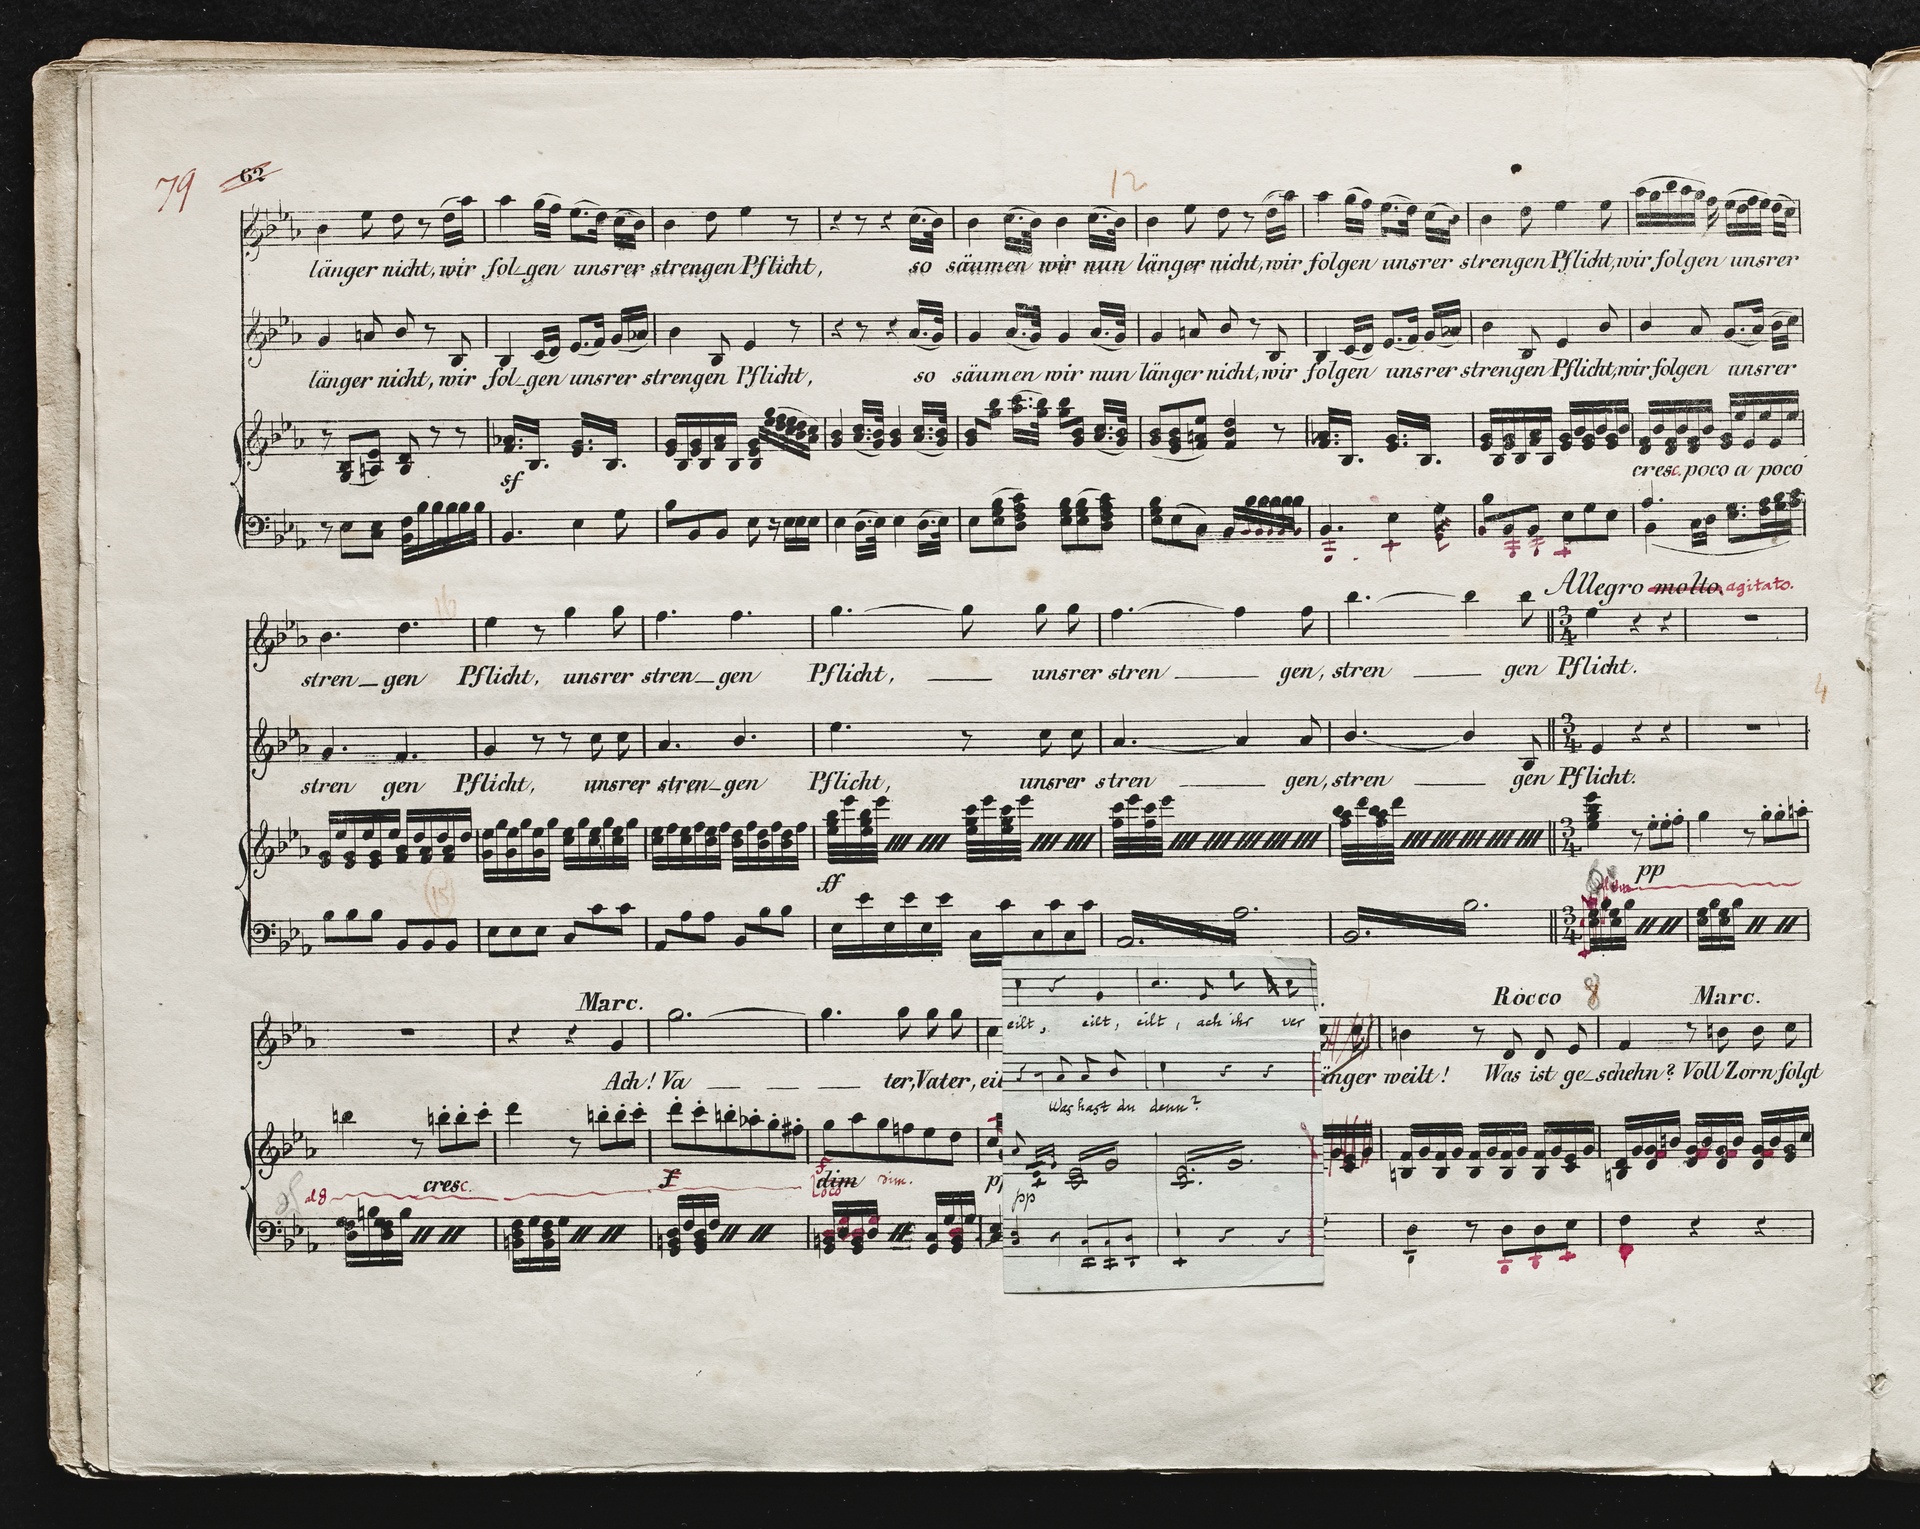 79 62 12
länger nicht, wir fol_gen unsrer strengen Pflicht, so säumen wir nun länger nicht, wir folgen unsrer strengen Pflicht, wir folgen unsrer
länger nicht, wir fol_gen unsrer strengen Pflicht, so säumen wir nun länger nicht, wir folgen unsrer strengen Pflicht, wir folgen unsrer
sf cresc. poco a poco
Allegro molto agitato.
16
stren_gen Pflicht, unsrer stren_gen Pflicht, unsrer stren gen, stren gen Pflicht.
4
3/4
stren gen Pflicht, unsrer stren_gen Pflicht, unsrer stren gen, stren gen Pflicht.
3/4
3/4
ff pp
15
3/4
Marc. Rocco 8 Marc.
eilt, eilt, eilt, ach ihr ver
Ach! Va ter, Vater, eil änger weilt! Was ist ge_schehn? Voll Zorn folgt
Was hast du denn?
f
cresc. f dim dim. pp
al 8 Loco